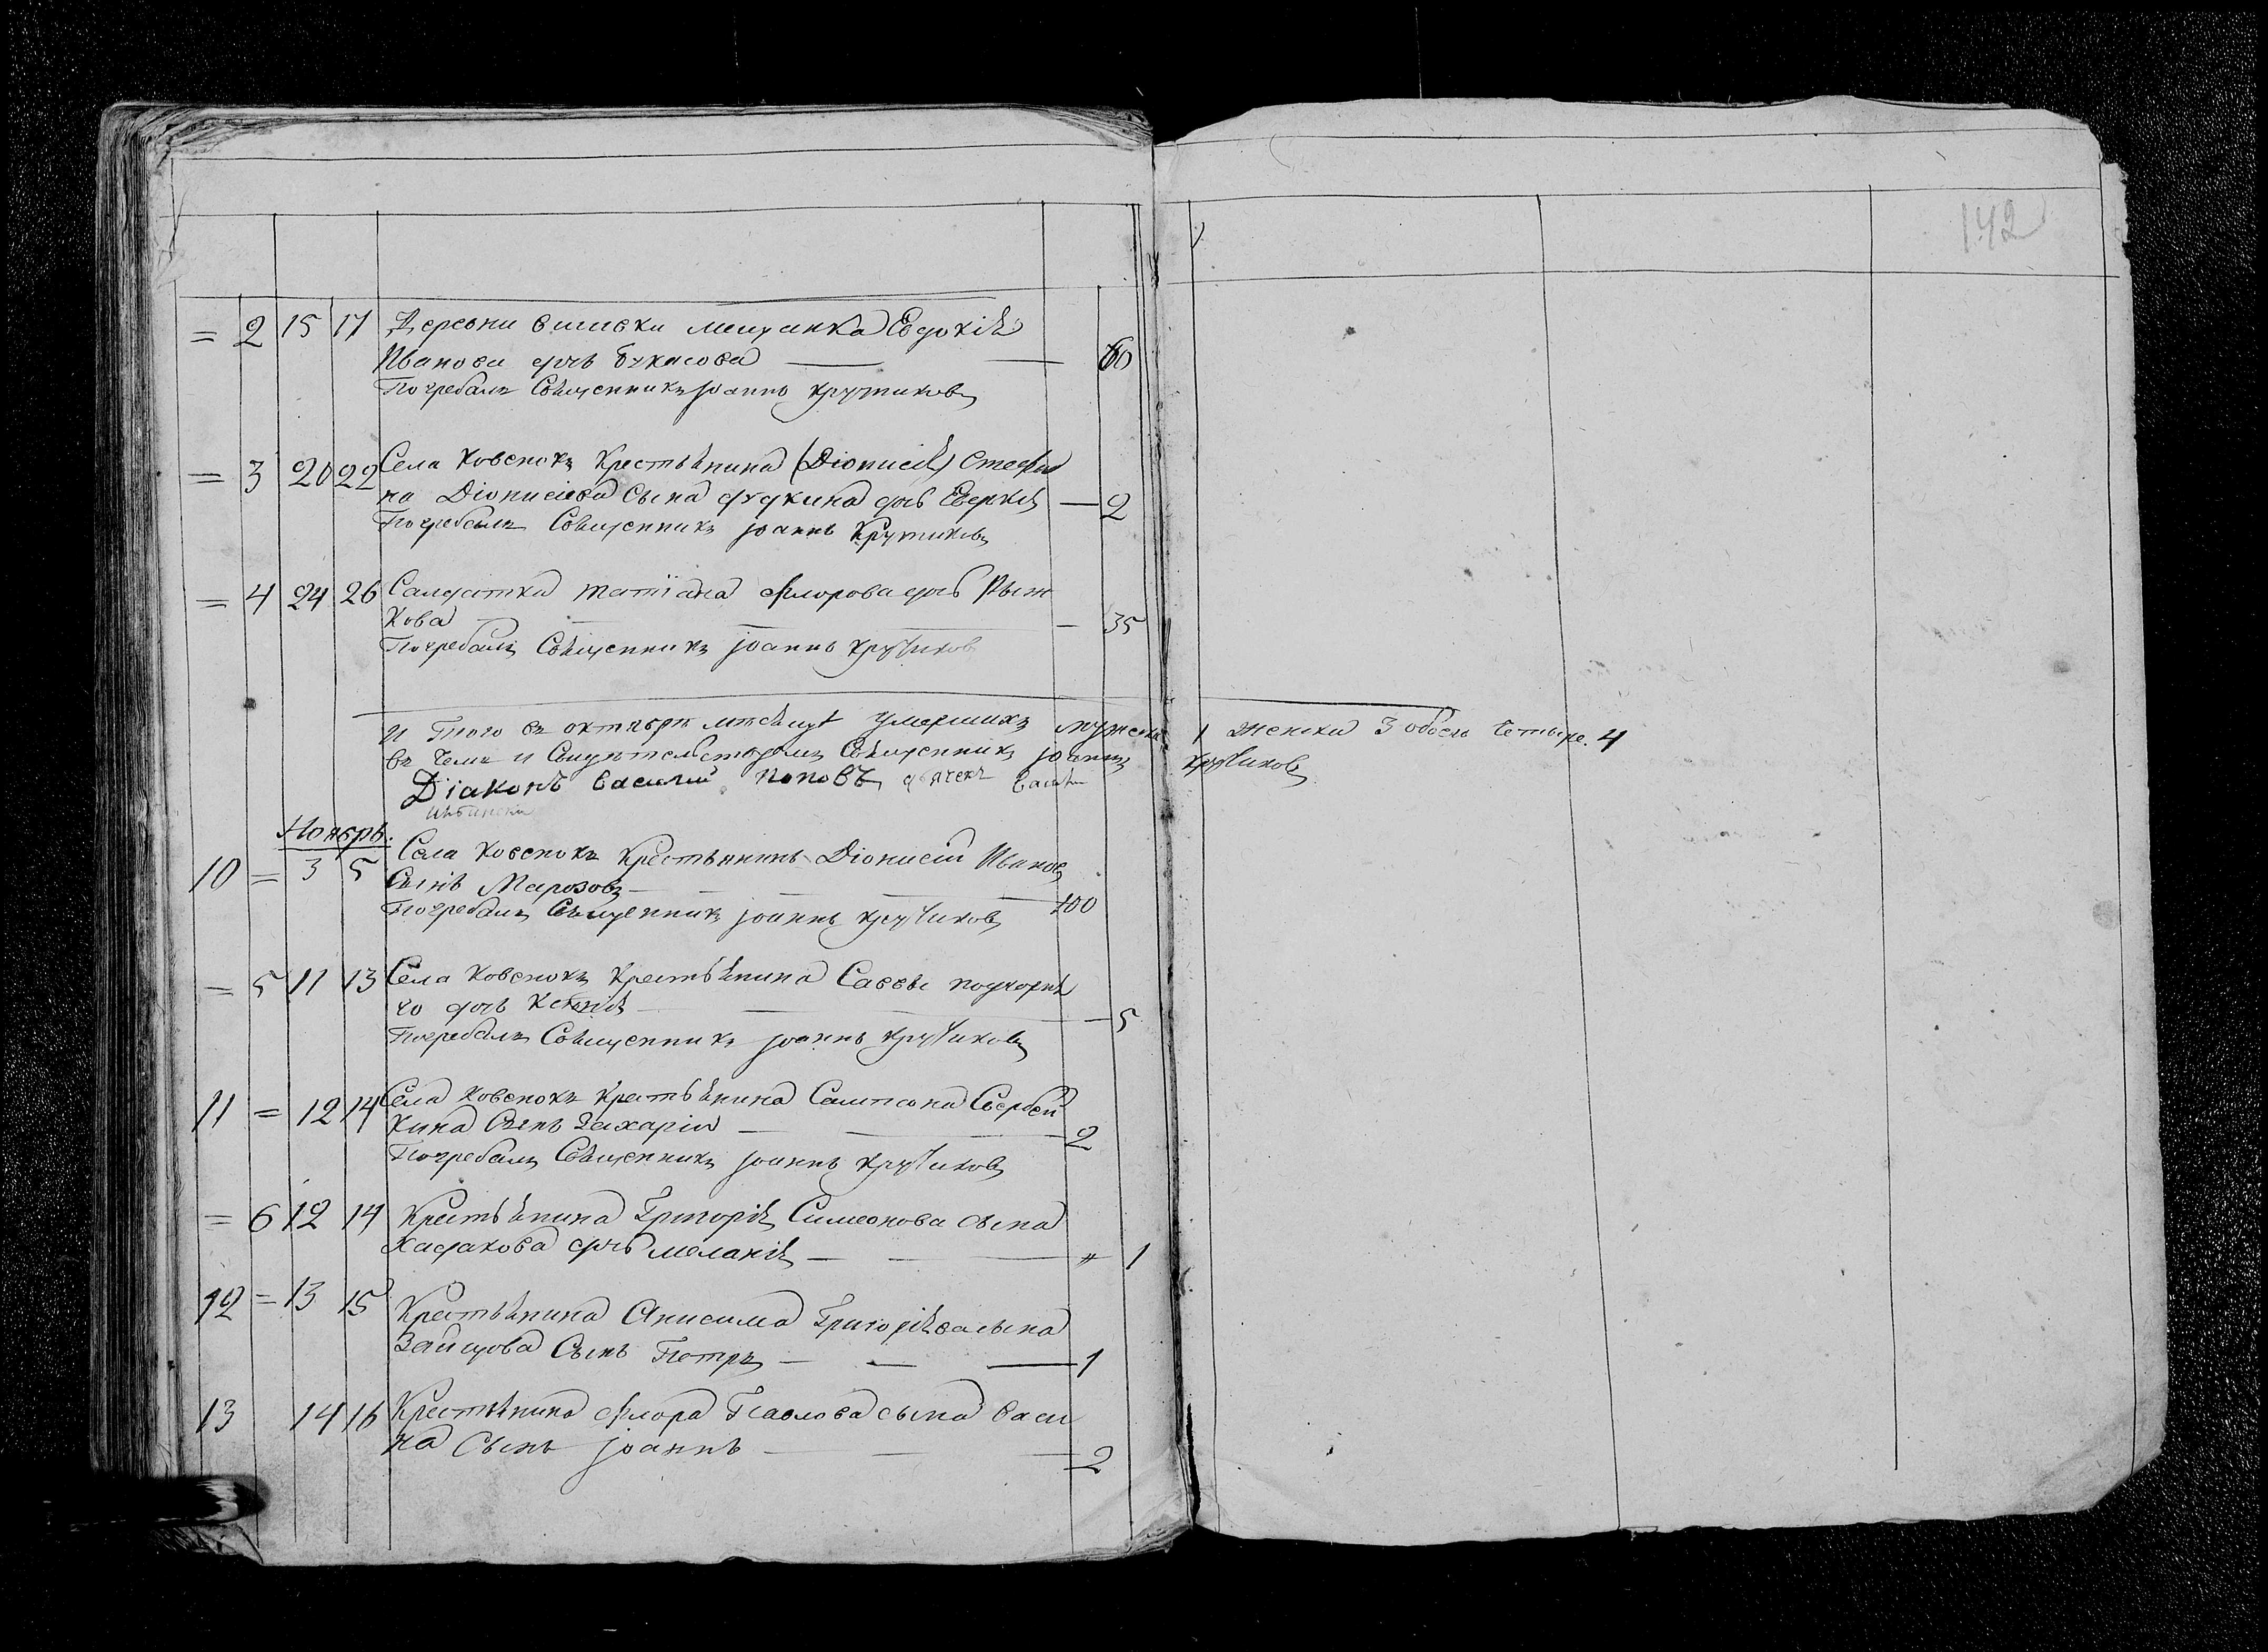 142
= 2 15 17 Деревни вишеѳки мещанка Евдокія
Иванова дочь Букасова — — 60
Погребалъ Священникъ Іоаннъ Крутиковъ
= 3 20 22 Села Ковенокъ Крестьянина (Діонисія) Стефа
на Діонисіева Сына Дудкина дочь — 2
Погребалъ Священникъ Іоаннъ Крутиковъ
= 4 24 26 Салдатка Татіана Флорова дочь Рыж
кова — — — 35
Погребалъ Священникъ Іоаннъ Крутиковъ
И Того въ октябрѣ мѣсяцѣ умершихъ мужеска 1 женска 3 обоего Четыре. 4
въ Чемъ и Свидѣтельствуемъ Священникъ Іоаннъ Крутиковъ
Діаконъ Василий Поповъ дьячекъ
Ноябрь.
10 = 3 5 Села Ковенокъ Крестьянинъ Діонисій Ивановъ
Сынъ Марозовъ — — — — 100
Погребалъ Священникъ Іоаннъ Крутиковъ
= 5 11 13 Села Ковенокъ Крестьянина Саввы Подгорня
го дочь Ксенія — — — 5
Погребалъ Священникъ Іоаннъ Крутиковъ
11 = 12 14 Села Ковенокъ Крестьянина Сампсона Свербей
кина Сынъ Захарія — — 2
Погребалъ Священникъ Іоаннъ Крутиковъ
= 6 12 14 Крестьянина Григорія Симеонова сына
Хадакова дочь Меланія — — — " 1
12 = 13 15 Крестьянина Анисима Григоріява сына
Зайцова Сынъ Петръ — — — 1
13 14 16 Крестьянина Флора Павлова сына Васи
на Сынъ Іоаннъ — — — 2